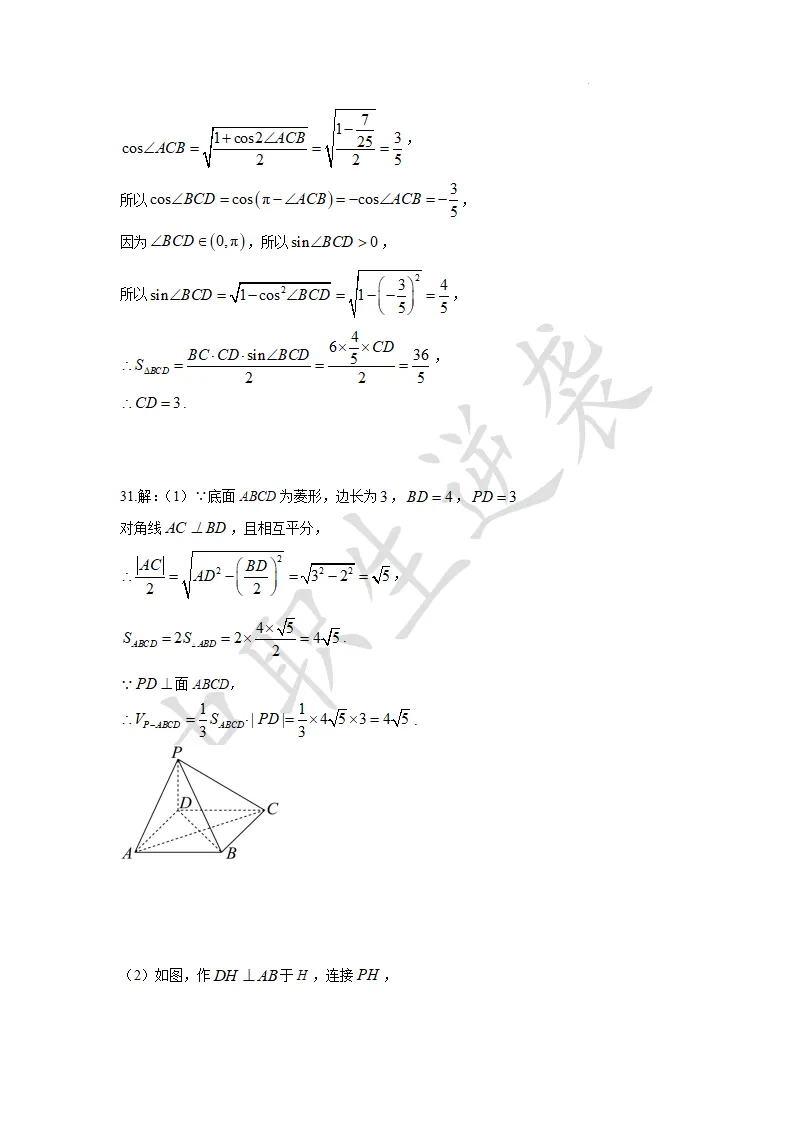 cos∠ACB = √((1+cos2∠ACB)/2) = √((1−7/25)/2) = 3/5，
所以cos∠BCD = cos(π−∠ACB) = −cos∠ACB = −3/5，
因为∠BCD∈(0,π)，所以sin∠BCD > 0，
所以sin∠BCD = √(1−cos²∠BCD) = √(1−(−3/5)²) = 4/5，
∴S_{ΔBCD} = (BC·CD·sin∠BCD)/2 = (6×4/5×CD)/2 = 36/5，
∴CD = 3.
31.解：（1）∵底面ABCD为菱形，边长为3，BD = 4，PD = 3
对角线AC ⊥ BD，且相互平分，
∴|AC|/2 = √(AD²−(BD/2)²) = √(3²−2²) = √5，
S_{ABCD} = 2S_{△ABD} = 2×(4×√5)/2 = 4√5.
∵PD⊥面ABCD，
∴V_{P−ABCD} = 1/3 S_{ABCD}·|PD| = 1/3×4√5×3 = 4√5.
P
D
C
A
B
（2）如图，作DH ⊥ AB于H，连接PH，
中职生逆袭